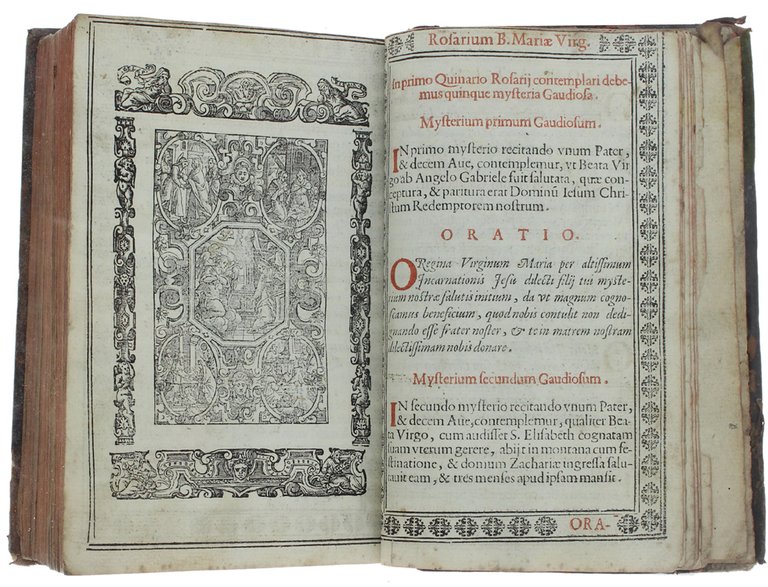 Rosarium B. Mariæ Virg.
In primo Quinario Rosarij contemplari debe-
mus quinque mysteria Gaudiosa.
Mysterium primum Gaudiosum.
IN primo mysterio recitando vnum Pater,
& decem Aue, contemplemur, vt Beata Vir
go ab Angelo Gabriele fuit salutata, quæ con-
ceptura, & paritura erat Dominũ Iesum Chri-
stum Redemptorem nostrum.
ORATIO.
O Regina Virginum Maria per altissimum
Incarnationis Jesu dilecti filij tui myste-
rium nostræ salutis initium, da vt magnum cogno-
scamus beneficium, quod nobis contulit non dedi-
gnando esse frater noster, & te in matrem nostram
dilectissimam nobis donare.
Mysterium secundum Gaudiosum.
IN secundo mysterio recitando vnum Pater,
& decem Aue, contemplemur, qualiter Bea-
ta Virgo, cum audisset S. Elisabeth cognatam
suam vterum gerere, abijt in montana cum fe-
stinatione, & domum Zachariæ ingressa salu-
tauit eam, & tres menses apud ipsam mansit.
ORA-